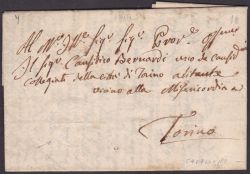 Al M.o Ill.e Sig.r Sig.r
Il Sig.r Causidico Bernardi uno de causidici
collegiati della città di Torino abitante
vicino alla Misericordia
Torino